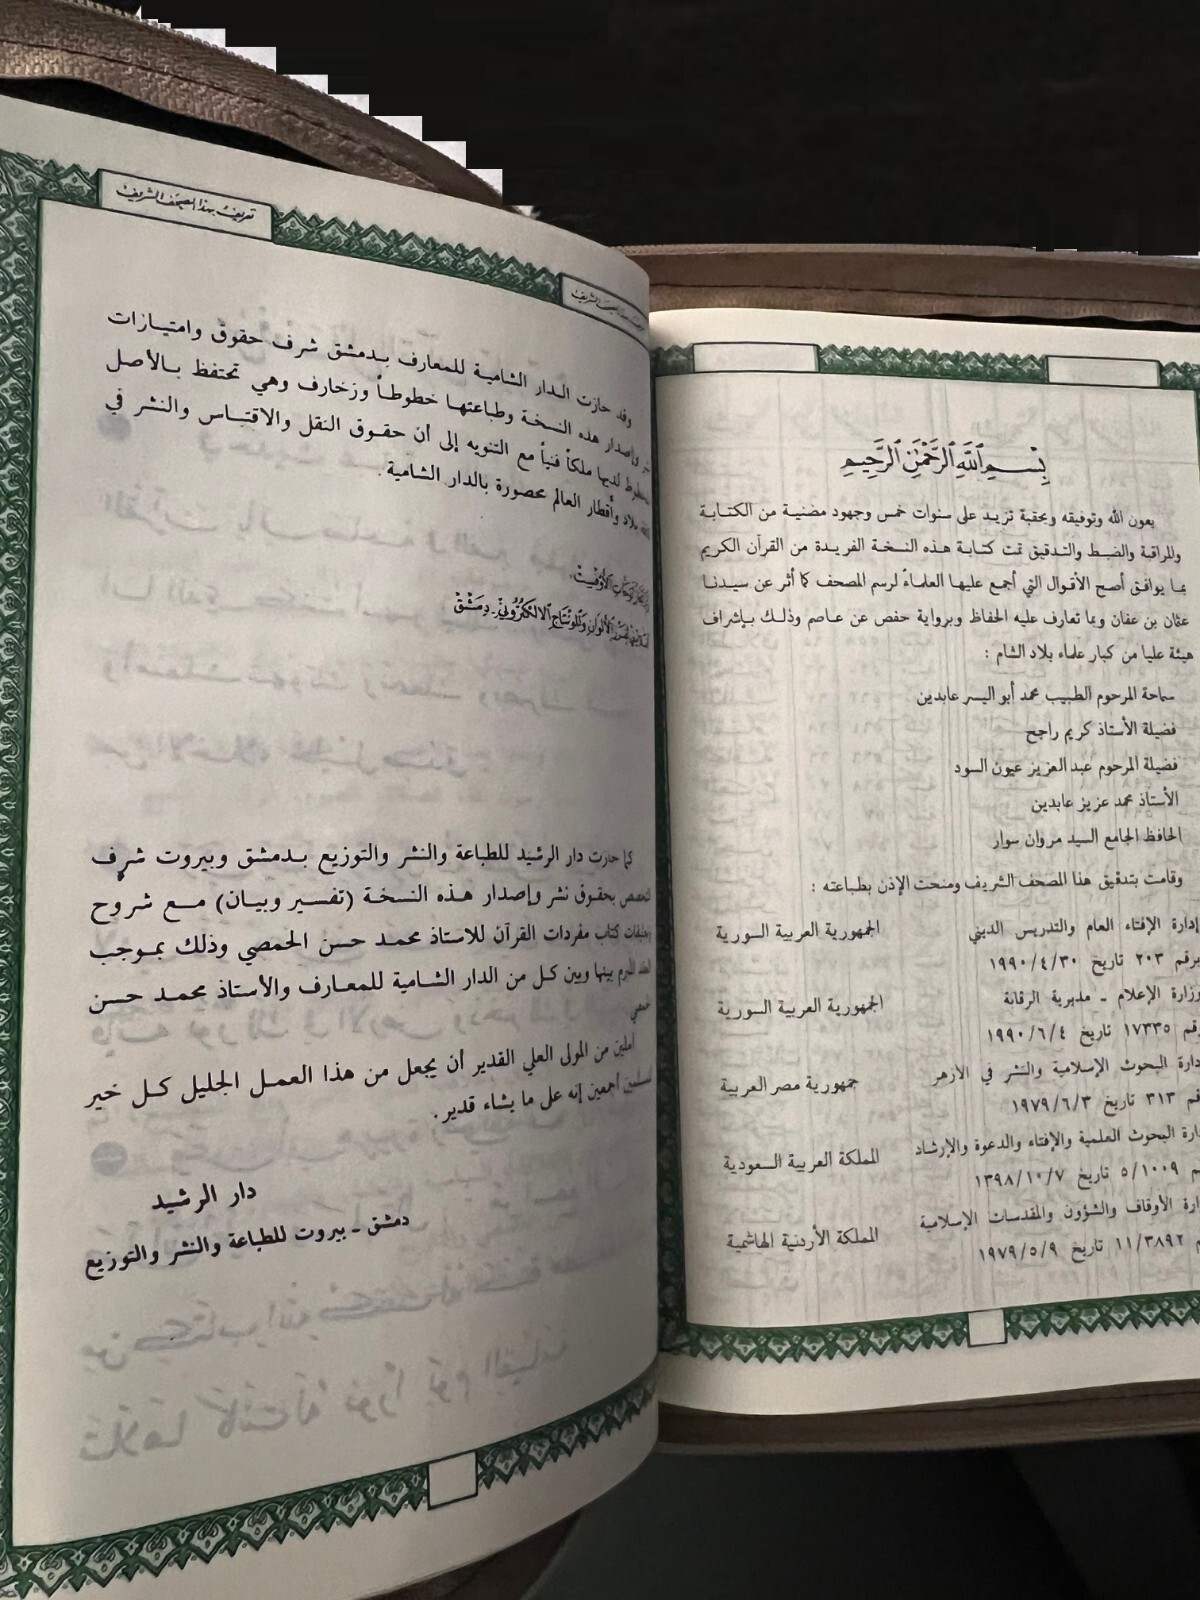 بِسْمِ ٱللَّهِ ٱلرَّحْمَٰنِ ٱلرَّحِيمِ
بعون الله وتوفيقه وبحقبة تزيد على سنوات خمس وجهود مضنية من الكتابة
والمراقبة والضبط والتدقيق تمت كتابة هذه النسخة الفريدة من القرآن الكريم
بما يوافق أصح الأقوال التي أجمع عليها العلماءُ لرسم المصحف كما أثر عن سيدنا
عثمان بن عفان وبما تعارف عليه الحفاظ وبرواية حفص عن عاصم وذلك بإشراف
هيئة عليا من كبار علماء بلاد الشام :
سماحة المرحوم الطبيب محمد أبو اليسر عابدين
فضيلة الأستاذ كريم راجح
فضيلة المرحوم عبد العزيز عيون السود
الأستاذ محمد عزيز عابدين
الحافظ الجامع السيد مروان سوار
وقامت بتدقيق هذا المصحف الشريف ومنحت الإذن بطباعته :
إدارة الإفتاء العام والتدريس الديني الجمهورية العربية السورية
برقم ٢٠٣ تاريخ ١٩٩٠/٤/٣٠
وزارة الإعلام - مديرية الرقابة الجمهورية العربية السورية
رقم ١٧٣٣٥ تاريخ ١٩٩٠/٦/٤
إدارة البحوث الإسلامية والنشر في الأزهر جمهورية مصر العربية
٣١٣ تاريخ ١٩٧٩/٦/٣
البحوث العلمية والإفتاء والدعوة والإرشاد المملكة العربية السعودية
٥/١٠٠٩ تاريخ ١٣٩٨/١٠/٧
الأوقاف والشؤون والمقدسات الإسلامية المملكة الأردنية الهاشمية
١١/٣٨٩٢ تاريخ ١٩٧٩/٥/٩
تعريف بهذا المصحف الشريف
وقد حازت الدار الشامية للمعارف بدمشق شرف حقوق وامتيازات
وإصدار هذه النسخة وطباعتها خطوطاً وزخارف وهي تحتفظ بالأصل
لديها ملكاً فنياً مع التنويه إلى أن حقوق النقل والاقتباس والنشر في
وأقطار العالم محصورة بالدار الشامية .
الأوفيت
الألوان والمونتاج الالكتروني - دمشق
كما حازت دار الرشيد للطباعة والنشر والتوزيع بدمشق وبيروت شرف
بحقوق نشر وإصدار هذه النسخة (تفسير وبيان) مع شروح
كتاب مفردات القرآن للاستاذ محمد حسن الحمصي وذلك بموجب
بينها وبين كل من الدار الشامية للمعارف والأستاذ محمد حسن
آملين من المولى العلي القدير أن يجعل من هذا العمل الجليل كل خير
أجمعين إنه على ما يشاء قدير .
دار الرشيد
دمشق - بيروت للطباعة والنشر والتوزيع